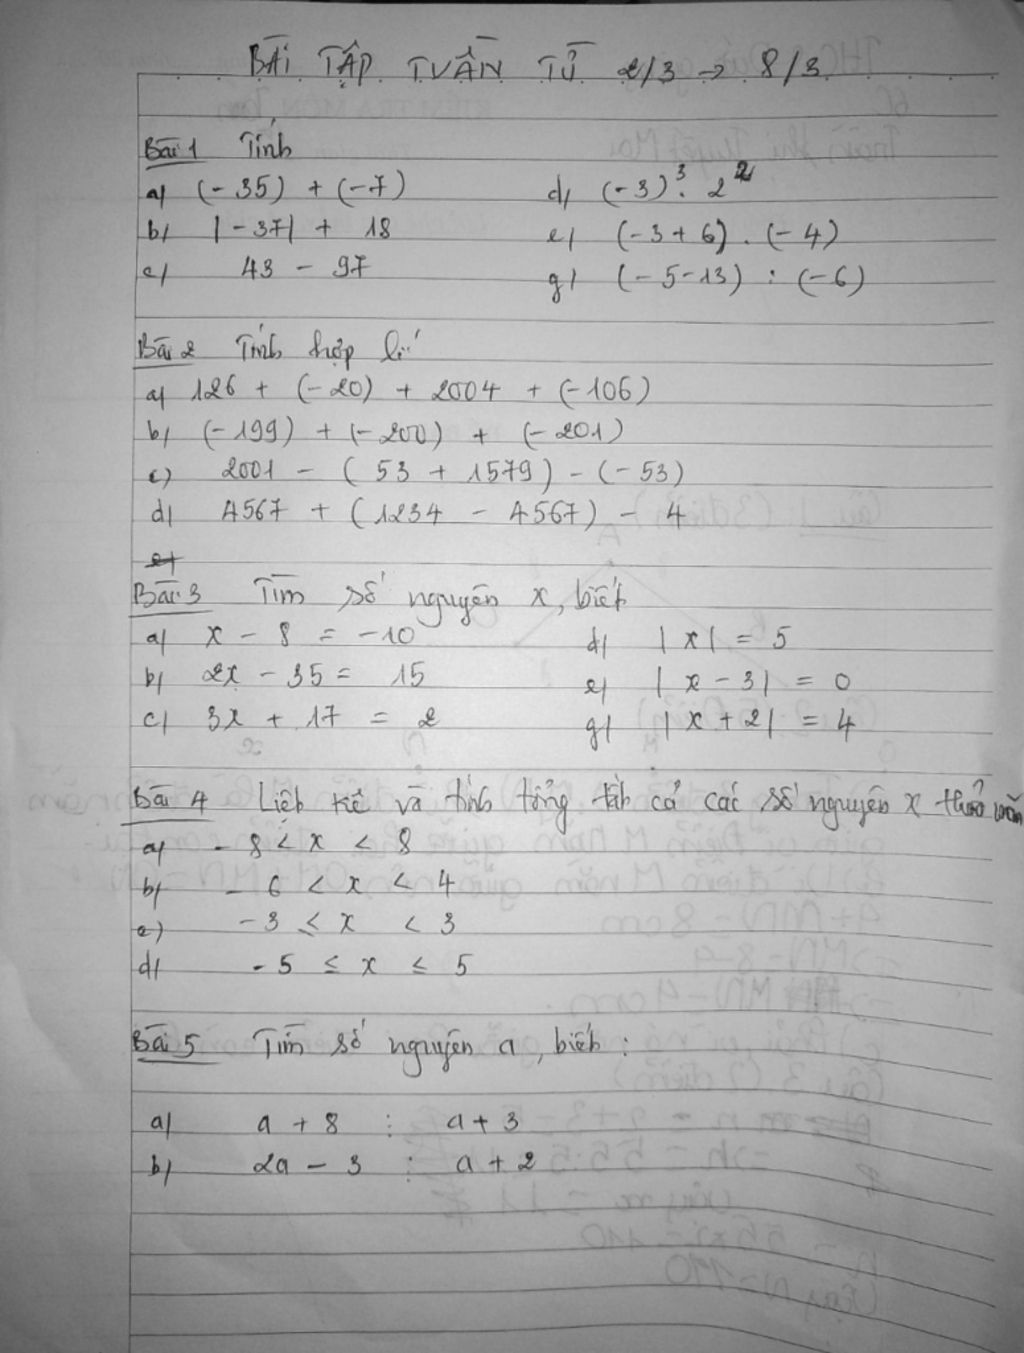 BÀI TẬP TUẦN TỪ 2/3 → 8/3
Bài 1 Tính
a) (-35) + (-7)
d) (-3)³. 2²
b) |-37| + 18
e) (-3+6) . (-4)
c) 43 - 97
g) (-5-13) : (-6)
Bài 2 Tính hợp lí
a) 126 + (-20) + 2004 + (-106)
b) (-199) + (-200) + (-201)
c) 2001 - (53 + 1579) - (-53)
d) 4567 + (1234 - 4567) - 4
Bài 3 Tìm số nguyên x, biết
a) x - 8 = -10
d) |x| = 5
b) 2x - 35 = 15
e) |x - 3| = 0
c) 3x + 17 = 2
g) |x + 2| = 4
Bài 4 Liệt kê và tính tổng tất cả các số nguyên x thoả mãn
a) - 8 < x < 8
b) - 6 < x < 4
c) -3 ≤ x < 3
d) - 5 ≤ x ≤ 5
Bài 5 Tìm số nguyên a, biết :
a) a + 8 ⋮ a + 3
b) 2a - 3 ⋮ a + 2